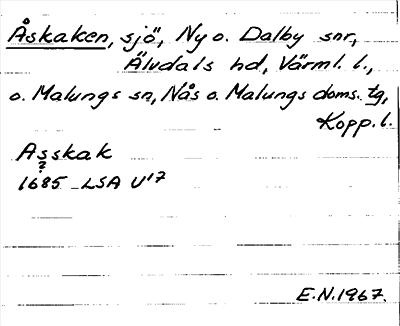 Åskaken, sjö, Ny o. Dalby snr,
Älvdals hd, Värml. l.,
o. Malungs sn, Nås o. Malungs doms. tg,
Kopp. l.
Asskak
?
1685 LSA U17
E.N. 1967.